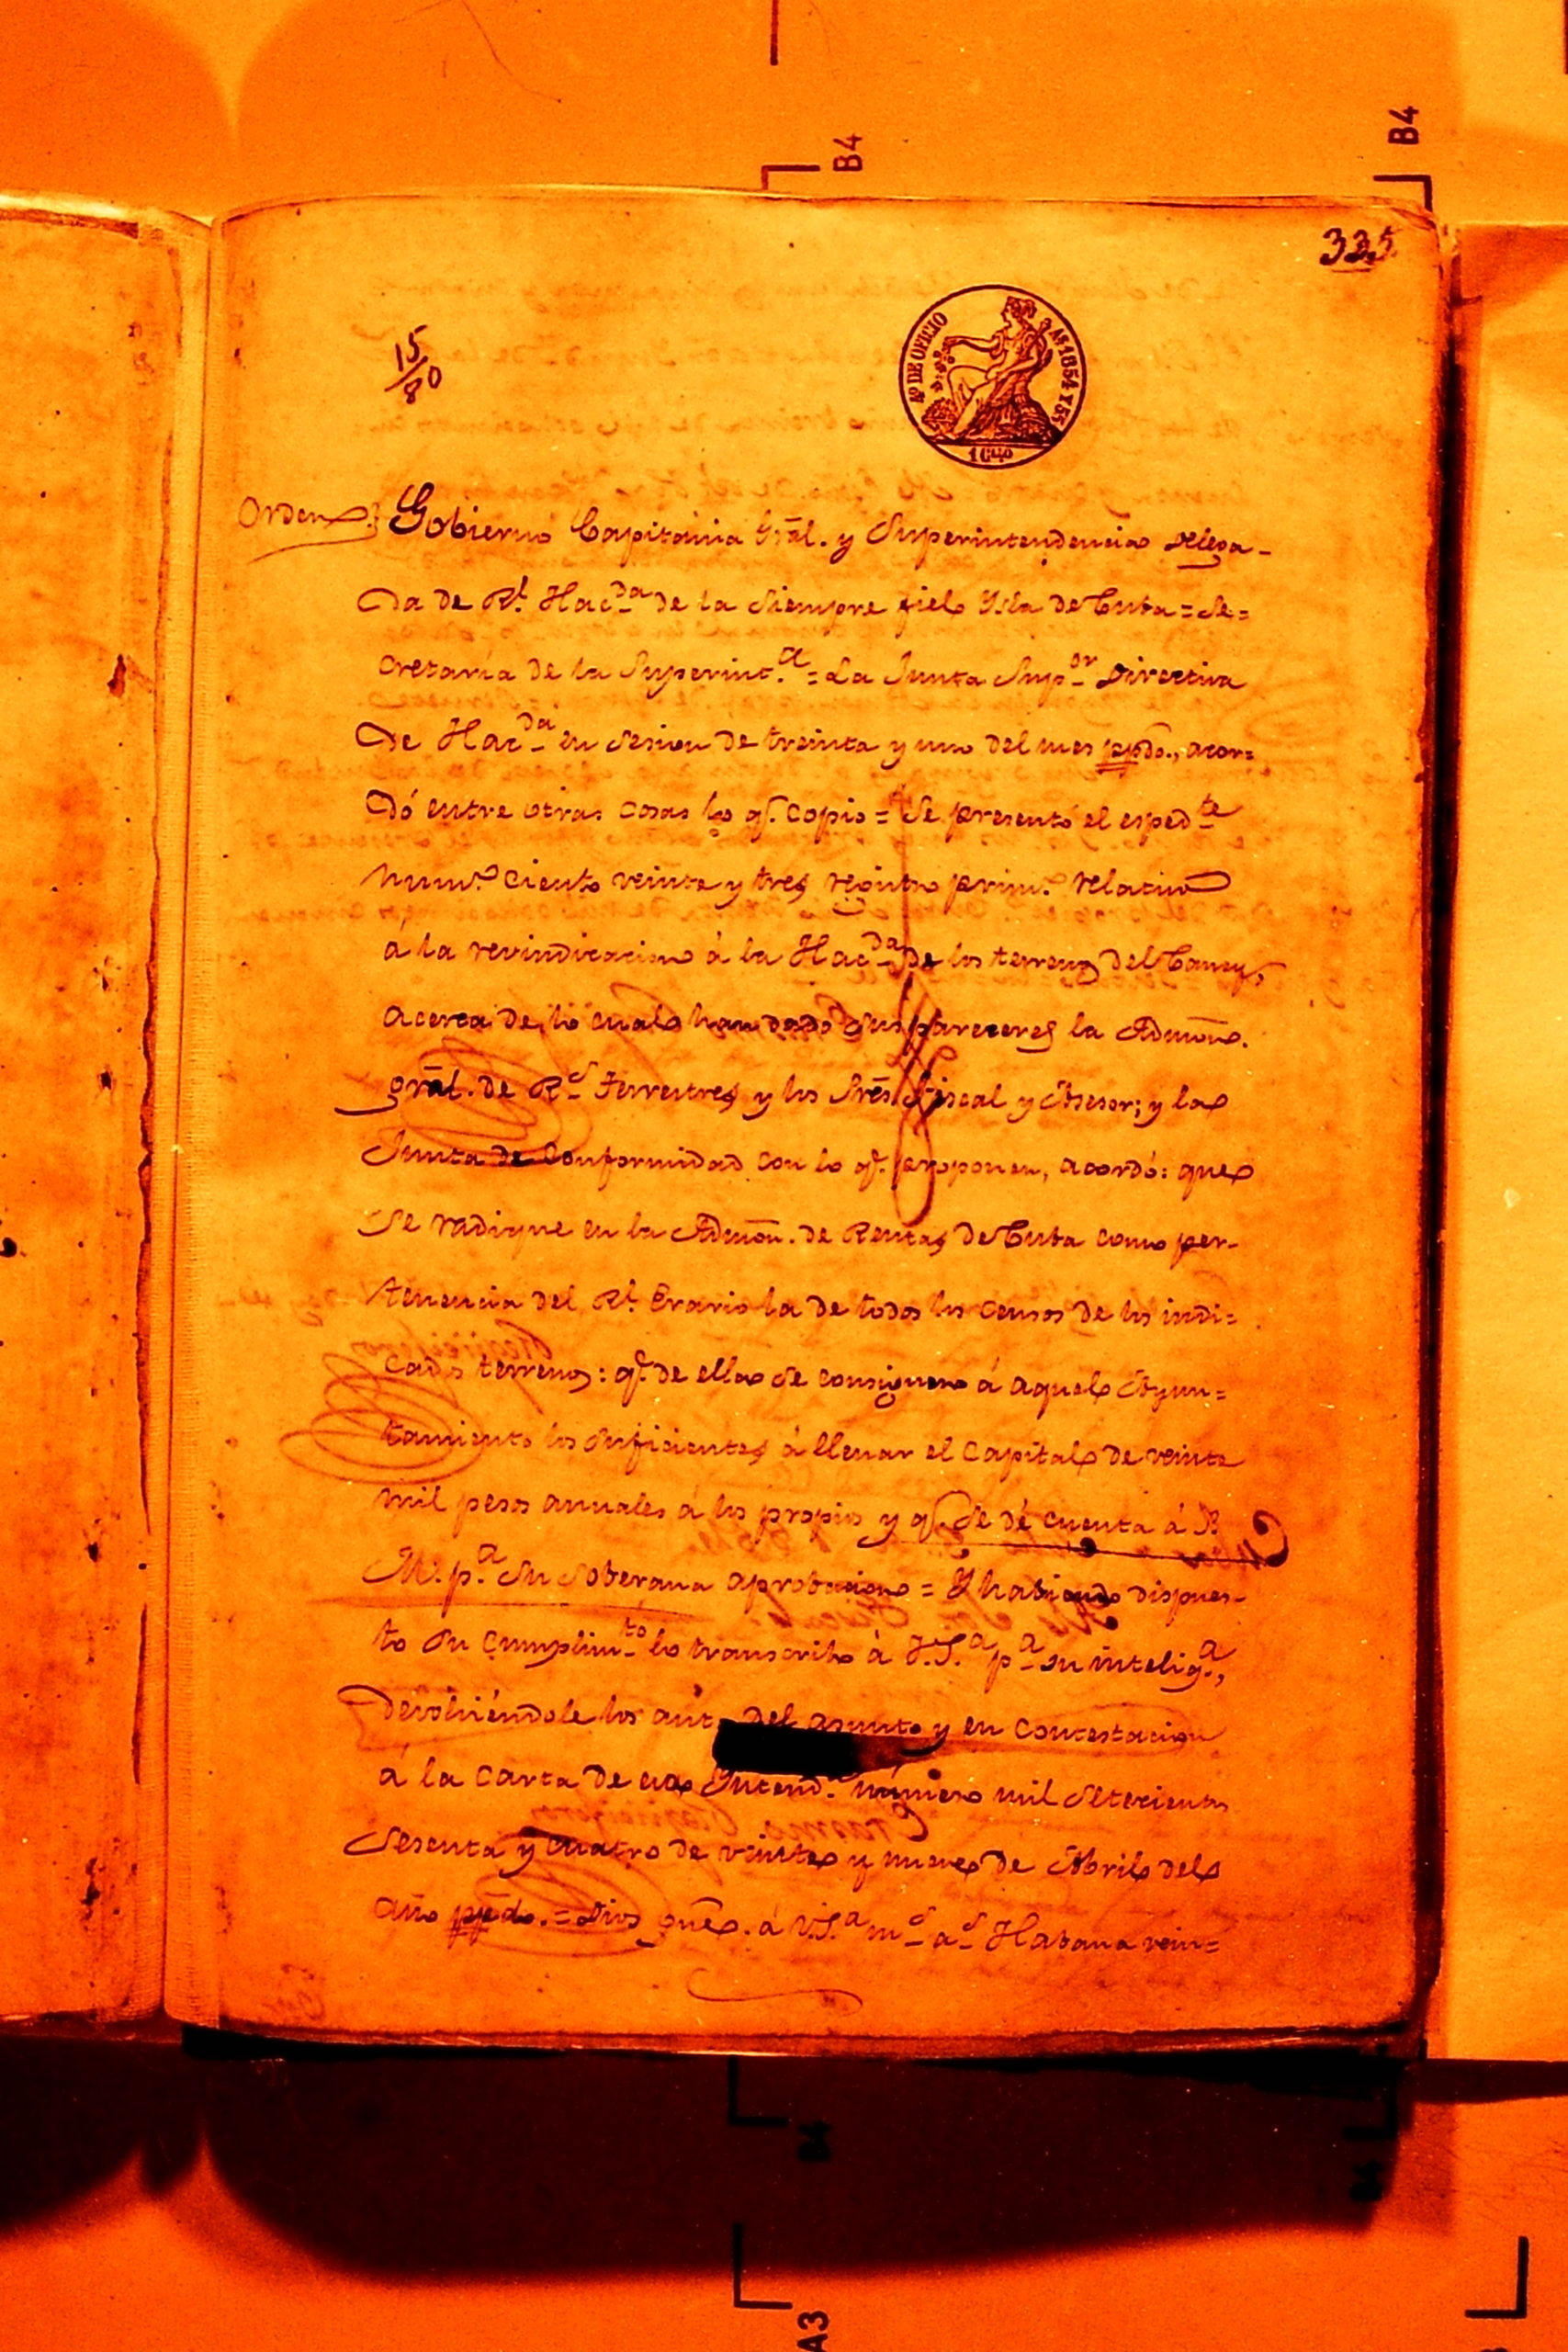 B4
B4
335
15/80
4º DE OFICIO
AS 1854 Y 55
Orden
Gobierno Capitania Grãl. y Superintendencia Delega-
da de Rl. Hacda de la Siempre fiel Ysla de Cuba = Se=
cretaría de la Superintª. = La Junta Supor Directiva
de Hacda en sesion de treinta y uno del mes ppdo., acor=
dó entre otras cosas lo q. copio = Se presentó el espedte
numº. ciento veinte y tres registro prim. relativo
á la revindicacion á la Hacda de los terrenos del Caney,
acerca de lo cual han dado sus pareceres la Admon.
grãl. de Rs Terrestres y los Sres Fiscal y Asesor; y la
Junta de conformidad con lo q. proponen, acordó: que
se radique en la Admon. de Rentas de Cuba como per-
tenencia del Rl. Erario la de todos los censos de los indi=
cados terrenos: q. de ellos se consignen á aquel Ayun=
tamiento los suficientes á llenar el Capital de veinte
mil pesos anuales á los propios y q. se dé cuenta á S.
M. pª. su soberana aprobacion = Y habiendo dispues-
to su cumplimto lo transcribo á V.S.ª pª su inteligª.,
devolviéndole los aut. del asunto y en contestacion
á la carta de esa Yntendª número mil setecientos
sesenta y cuatro de veinte y nueve de Abril del
año ppdo. = Dios gue. á V.S.ª ms as Habana vein=
B4
A3